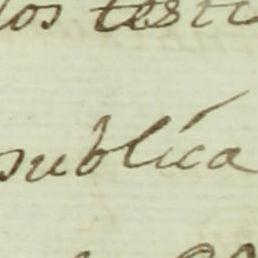 los testi
publica